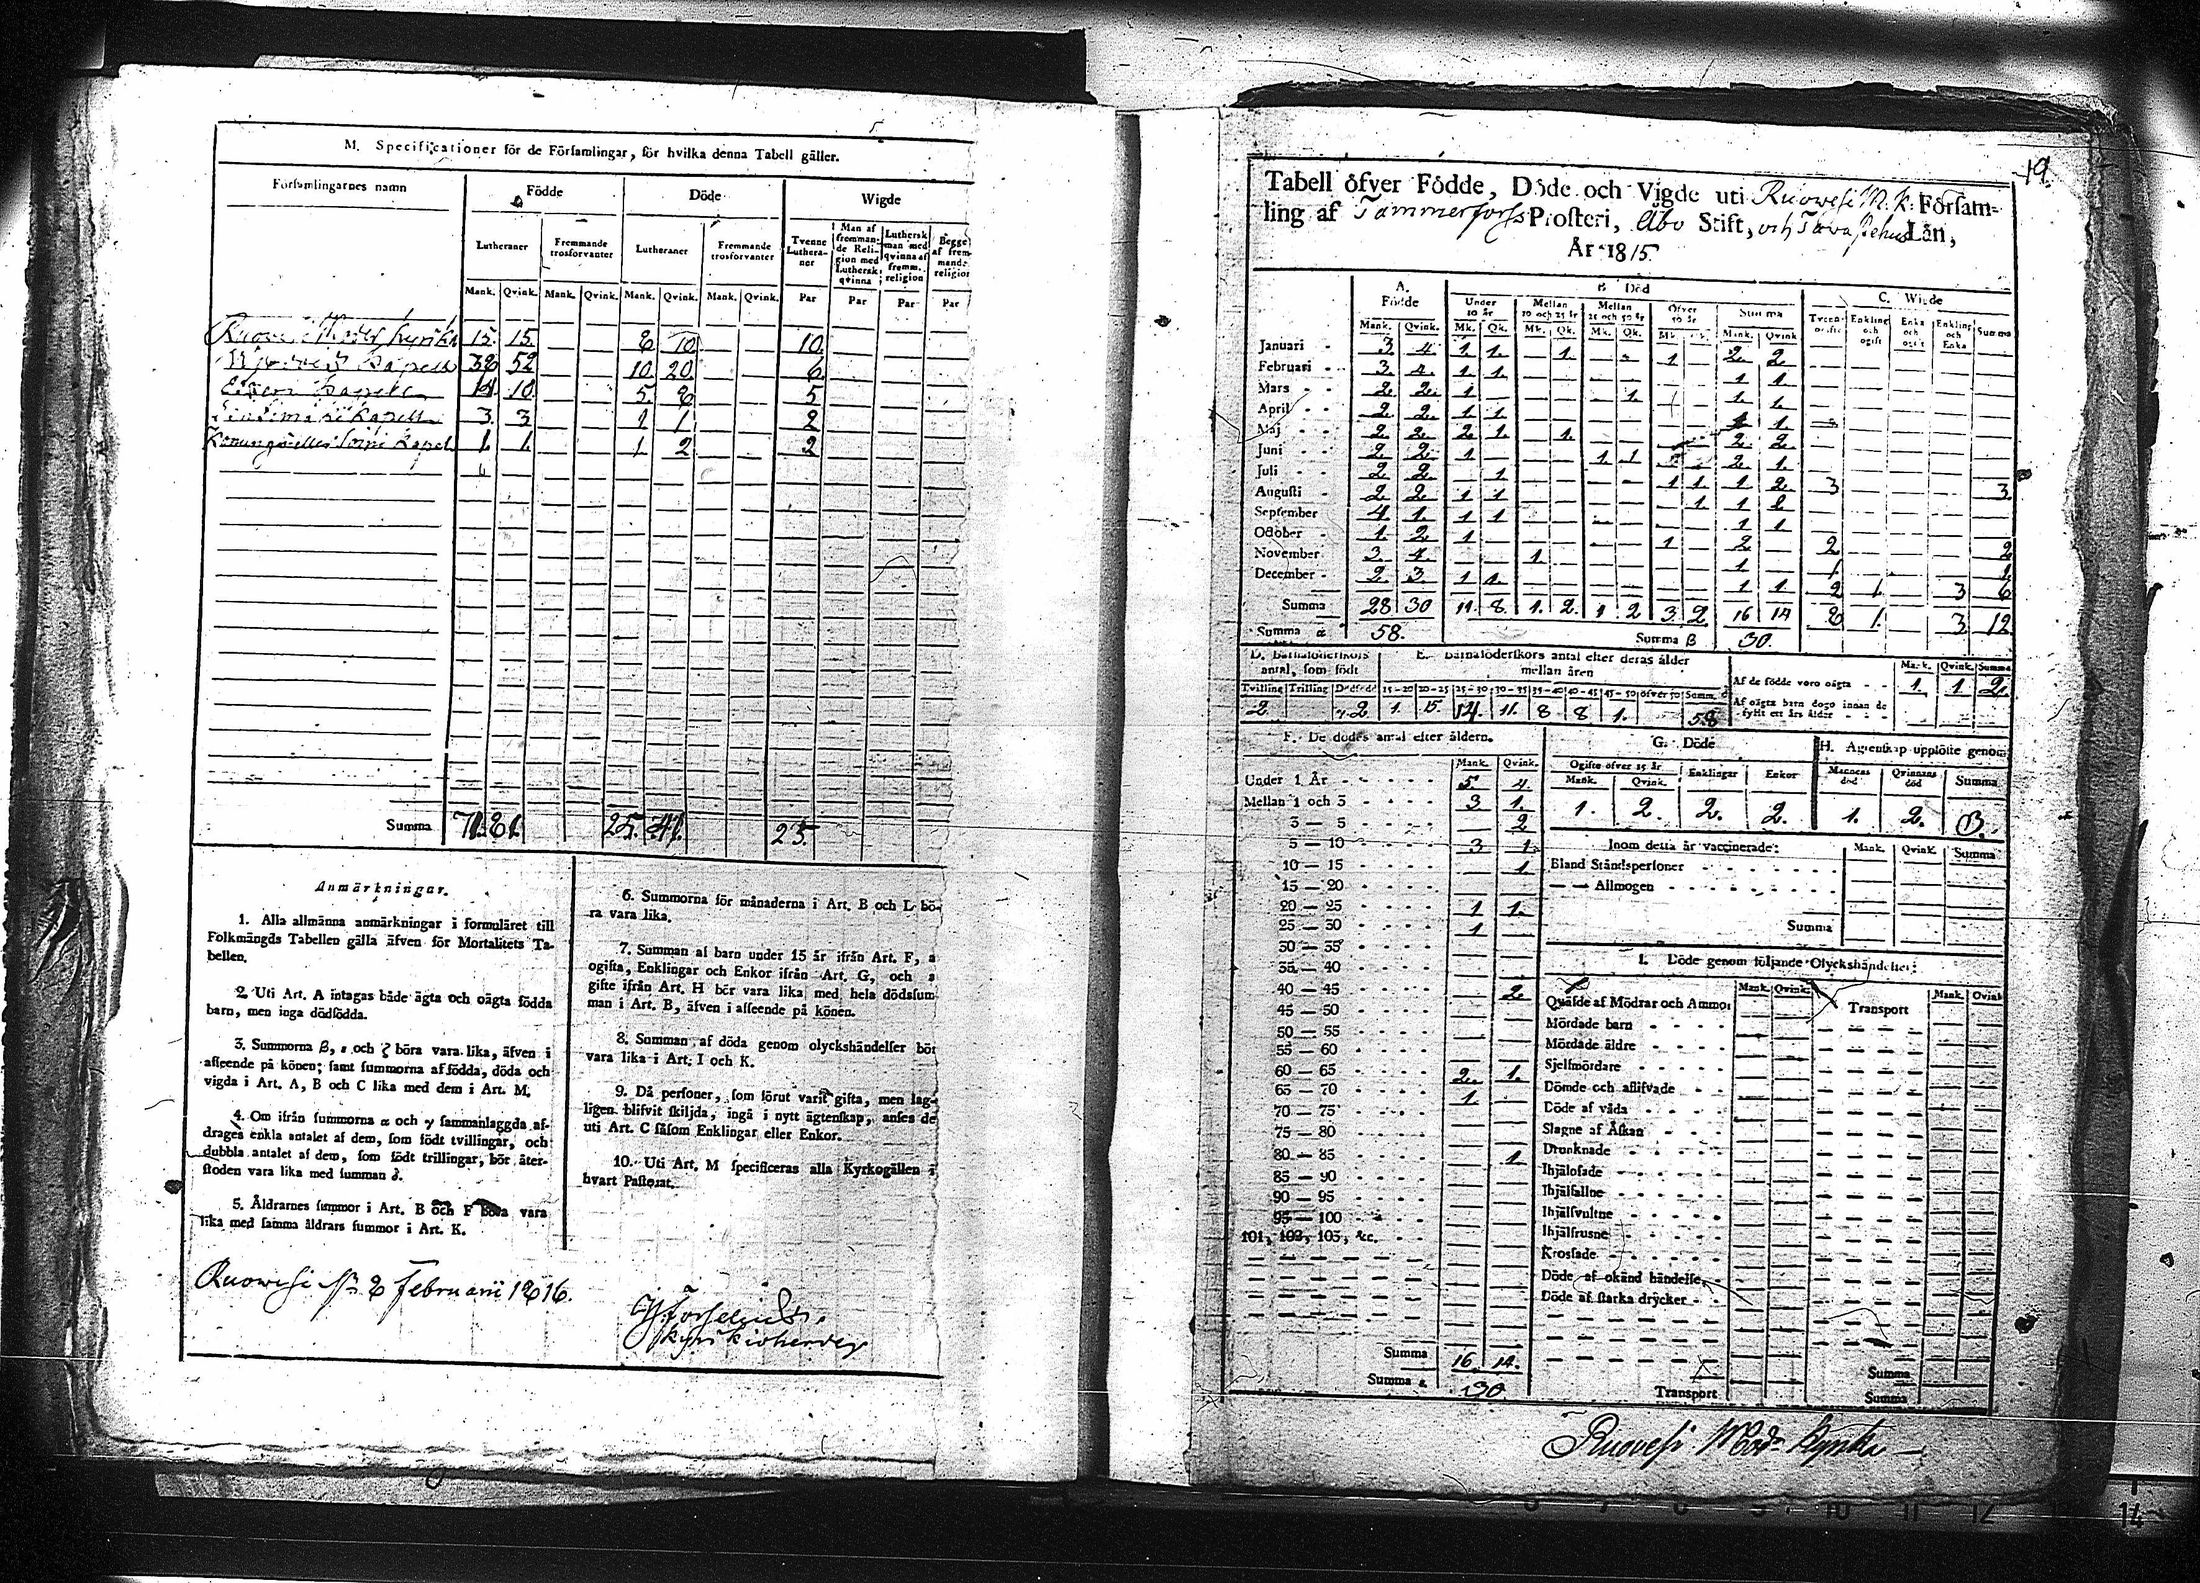 M. Specificationer för de Församlingar, för hvilka denna Tabell gäller.
Församlingarnes namn
Födde Döde Wigde
Lutheraner Fremmande trosförvanter Lutheraner Fremmande trosförvanter Tvenne Lutheraner Man af fremmande Religion med Luthersk qvinna Luthersk man med qvinna af fremm. religion Begge af fremmande religion
Mank. Qvink. Mank. Qvink. Mank. Qvink. Mank. Qvink. Par Par Par Par
Ruovesi Moder kyrka 15. 15. 8 10 10.
Kapell 38 52 10 20 6
Kapell 14 10. 5. 8 5
Kapell 3. 3 1 1 2
Kapell 1. 1. 1 2 2
Summa 71. 81. 25. 41. 25.
Anmärkningar.
1. Alla allmänna anmärkningar i formuläret till
Folkmängds Tabellen gälla äfven för Mortalitets Ta-
bellen.
2. Uti Art. A intagas både ägta och oägta födda
barn, men inga dödfödda.
3. Summorna β, ε och ζ böra vara lika, äfven i
afseende på könen; samt summorna af födda, döda och
vigda i Art. A, B och C lika med dem i Art. M.
4. Om ifrån summorna α och γ sammanlaggda af-
drages enkla antalet af dem, som födt tvillingar, och
dubbla antalet af dem, som födt trillingar, bör åter-
stoden vara lika med summan δ.
5. Åldrarnes summor i Art. B och F böra vara
lika med samma åldrars summor i Art. K.
6. Summorna för månaderna i Art. B och L bö-
ra vara lika.
7. Summan af barn under 15 år ifrån Art. F,
ogifta, Enklingar och Enkor ifrån Art. G, och
gifte ifrån Art. H bör vara lika med hela dödssum-
man i Art. B, äfven i afseende på könen.
8. Summan af döda genom olyckshändelser bör
vara lika i Art. I och K.
9. Då personer, som förut varit gifta, men lag-
ligen blifvit skiljda, ingå i nytt ägtenskap, anses de
uti Art. C såsom Enklingar eller Enkor.
10. Uti Art. M specificeras alla Kyrkogällen i
hvart Pastorat.
Ruowesi 8 Februarii 1816.
Kyrkioherde
19.
Tabell öfver Födde, Döde och Vigde uti Ruowesi M. K. Försam-
ling af Tammerfors Prosteri, Åbo Stift, och Tavastehus Län,
År 1815.
A. Födde B Död C. Wigde
Under 10 år Mellan 10 och 25 år Mellan 25 och 50 år Öfver 50 år Summa Enkling och ogift Enka och ogift Enkling och Enka Summa
Mank. Qvink. Mk. Qk. Mk. Qk. Mk. Qk. Mk. Mank. Qvink
Januari 3 4 1 1. 1 1 2 2
Februari 3 4 1 1 1 1
Mars 2 2 1 1 1 1
April 2 2. 1 1 1 1
Maj 2 2 2 1. 1. 2 2
Juni 2 2 1 1 1 2 1.
Juli 2 2. 1 1 1 1 2 3 3
Augusti 2 2 1 1 1 1 1
September 4 1. 1 1 1 1
October 1 2 1 1 2 2 2
November 3 4 1 1 1 1
December 2 3 1 1 1 1 2 1 3 6
Summa 28 30 11 8. 1. 2. 1 2 3 2 16 14 8 1. 3. 12
Summa α 58. Summa β 30.
D. Barnaföderskors antal, som födt
E. Barnaföderskors antal efter deras ålder mellan åren
Tvilling Trilling Dödfödd 15-20 20-25 25-30 30-35 35-40 40-45 45-50 öfver 50 Summ. δ
2 2 1. 15. 14. 11. 8 8 1. 58
Mank. Qvink. Summa
Af de födde voro oägta 1. 1. 2
Af oägta barn dogo innan de
fyllt ett års ålder
F. De dödes antal efter åldern.
Mank. Qvink.
Under 1 År 5. 4.
Mellan 1 och 3 3 1.
3 — 5 2
5 — 10 3 1.
10 — 15 1
15 — 20
20 — 25 1 1.
25 — 30 1
30 — 35
35 — 40
40 — 45 2.
45 — 50
50 — 55
55 — 60
60 — 65 2. 1.
65 — 70 1
70 — 75
75 — 80
80 — 85 1
85 — 90
90 — 95
95 — 100
101, 103, 105, &c.
Summa 16 14.
Summa ε 30.
G. Döde
Ogifte öfver 15 år Enklingar Enkor
Mank. Qvink.
1. 2. 2. 2.
H. Ägtenskap upplöste genom
Mannens död Qvinnans död Summa
1. 2. 3.
Inom detta år vaccinerade: Mank. Qvink. Summa
Bland Ståndspersoner
— — Allmogen
Summa
I. Döde genom följande Olyckshändelser:
Mank. Qvink. Mank. Qvink
Qväfde af Mödrar och Ammor Transport
Mördade barn
Mördade äldre
Sjelfmördare
Dömde och aflifvade
Döde af våda
Slagne af Åskan
Drunknade
Ihjälosade
Ihjälfallne
Ihjälsvultne
Ihjälfrusne
Krossade
Döde af okänd händelse
Döde af starka drycker
Summa
Transport Summa
Ruovesi Mod. Kyrka